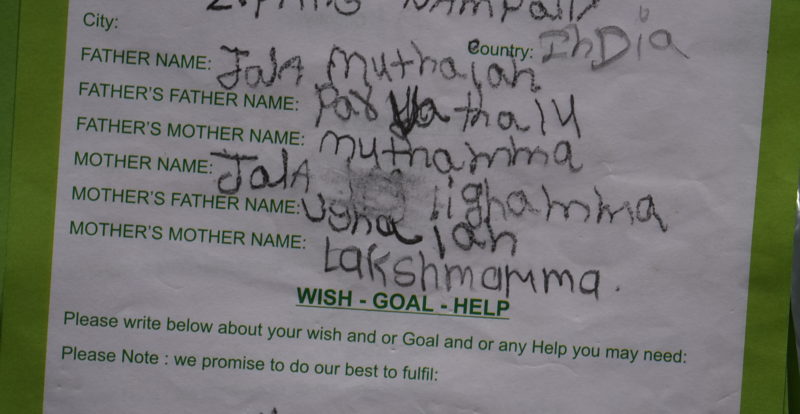 City:
Country: InDia
FATHER NAME: JalA muthaiah
FATHER'S FATHER NAME: Parvathaiu
FATHER'S MOTHER NAME: muthamma
MOTHER NAME: JalA lighamma
MOTHER'S FATHER NAME:
MOTHER'S MOTHER NAME: Lakshmamma.
WISH - GOAL - HELP
Please write below about your wish and or Goal and or any Help you may need:
Please Note : we promise to do our best to fulfil: